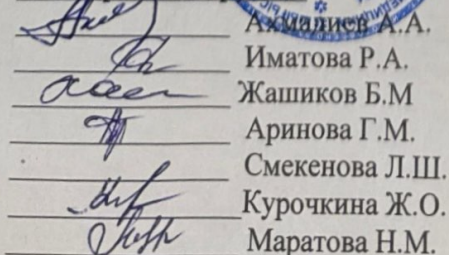 Ахмалиев А.А.
Иматова Р.А.
Жашиков Б.М
Аринова Г.М.
Смекенова Л.Ш.
Курочкина Ж.О.
Маратова Н.М.